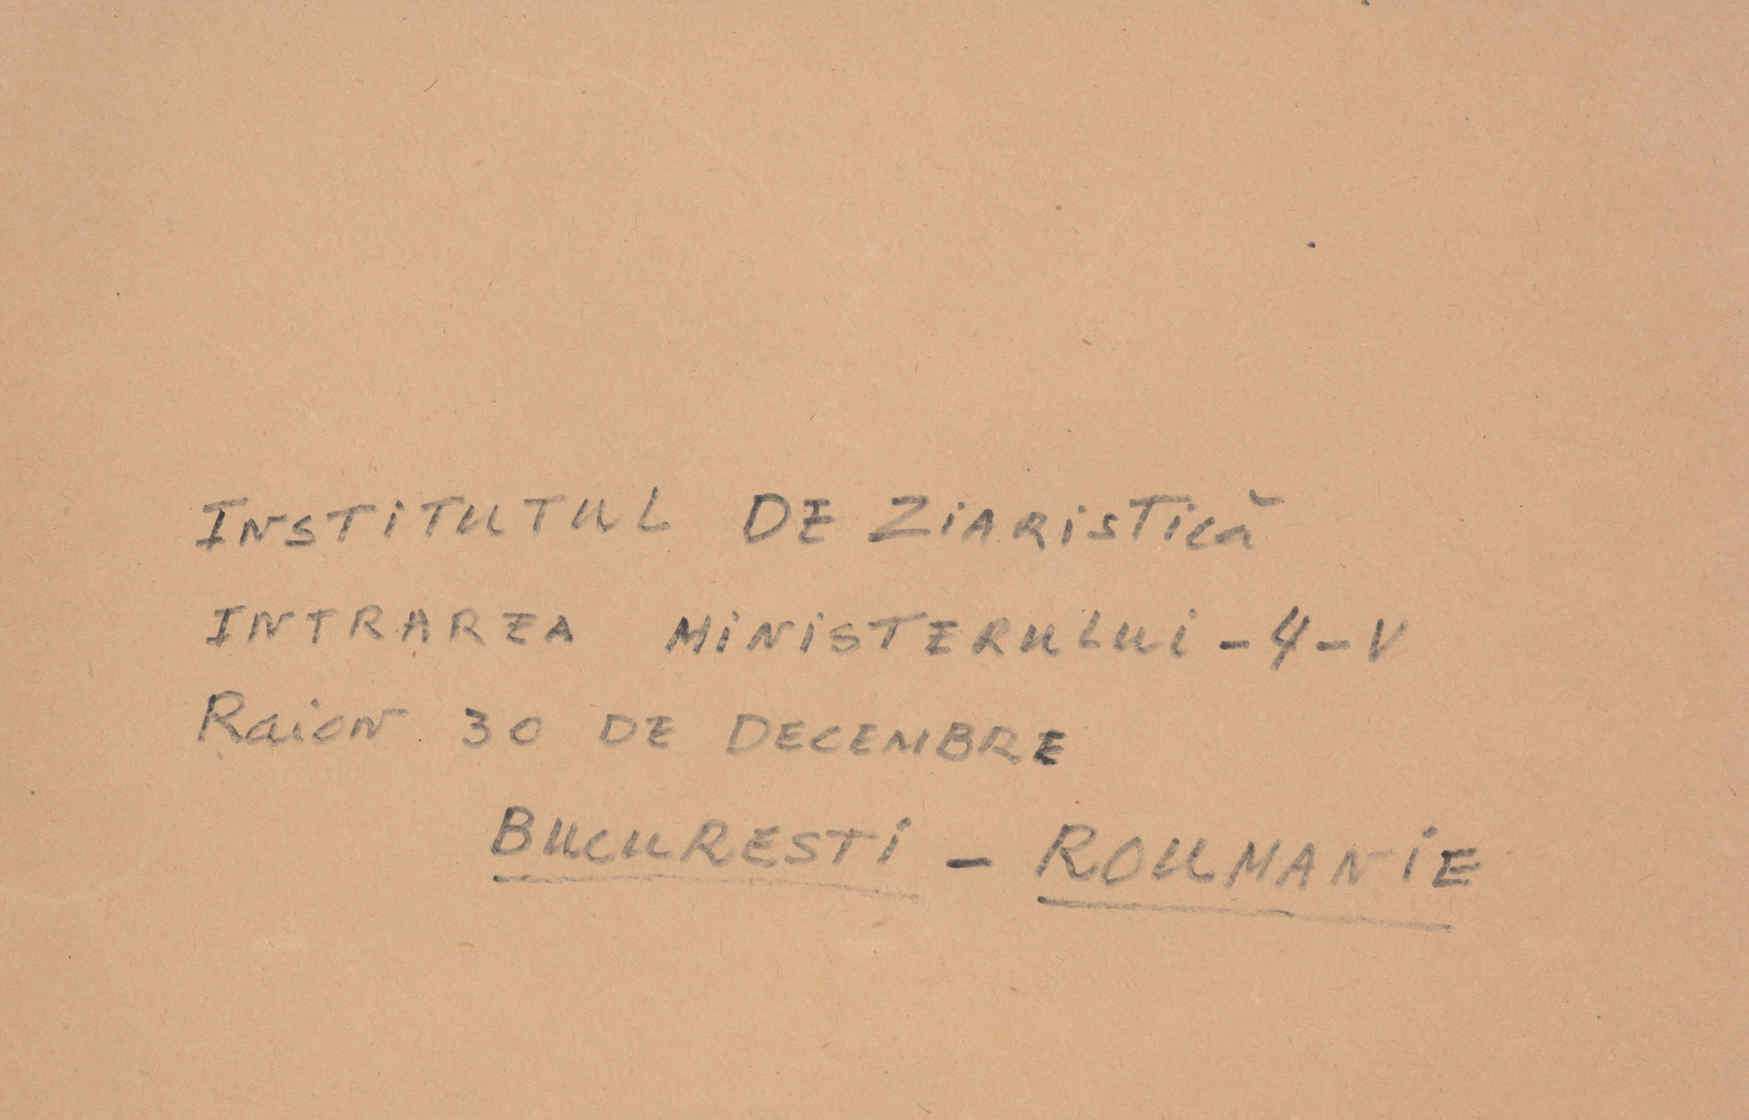 INSTITUTUL DE ZIARISTICĂ
INTRAREA MINISTERULUI - 4 - V
Raion 30 DE DECEMBRE
BUCURESTI - ROUMANIE